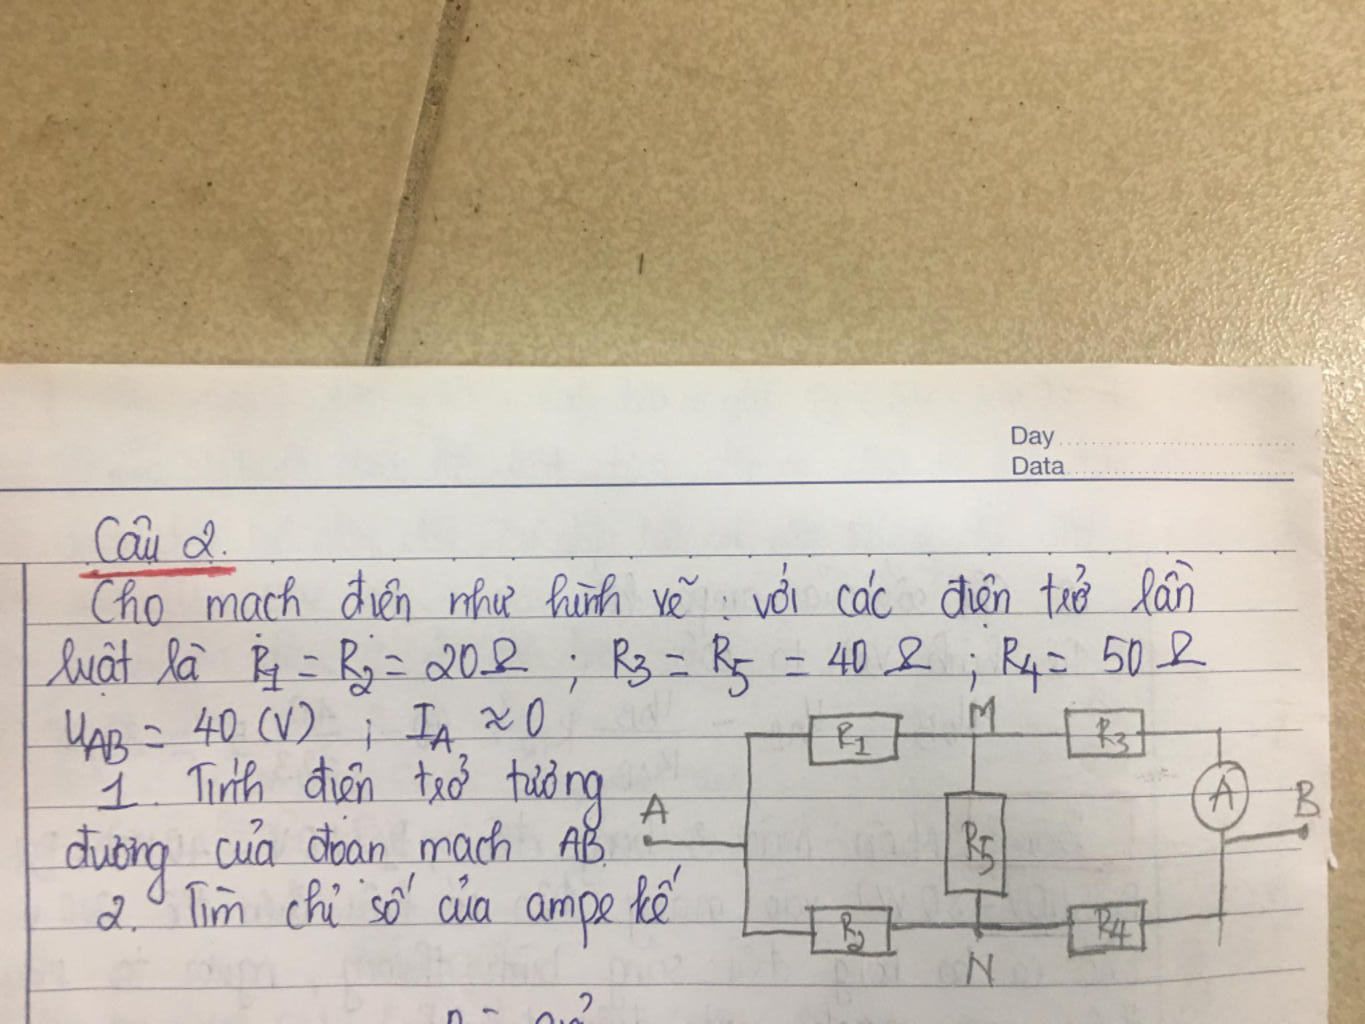 Day
Data
Câu 2.
Cho mạch điện như hình vẽ. với các điện trở lần
lượt là R1 = R2 = 20Ω ; R3 = R5 = 40Ω ; R4 = 50Ω
UAB = 40 (V) ; IA ≈ 0
1. Tính điện trở tương
đương của đoạn mạch AB.
2. Tìm chỉ số của ampe kế
M
R1
R3
A
A
B
R5
R2
R4
N